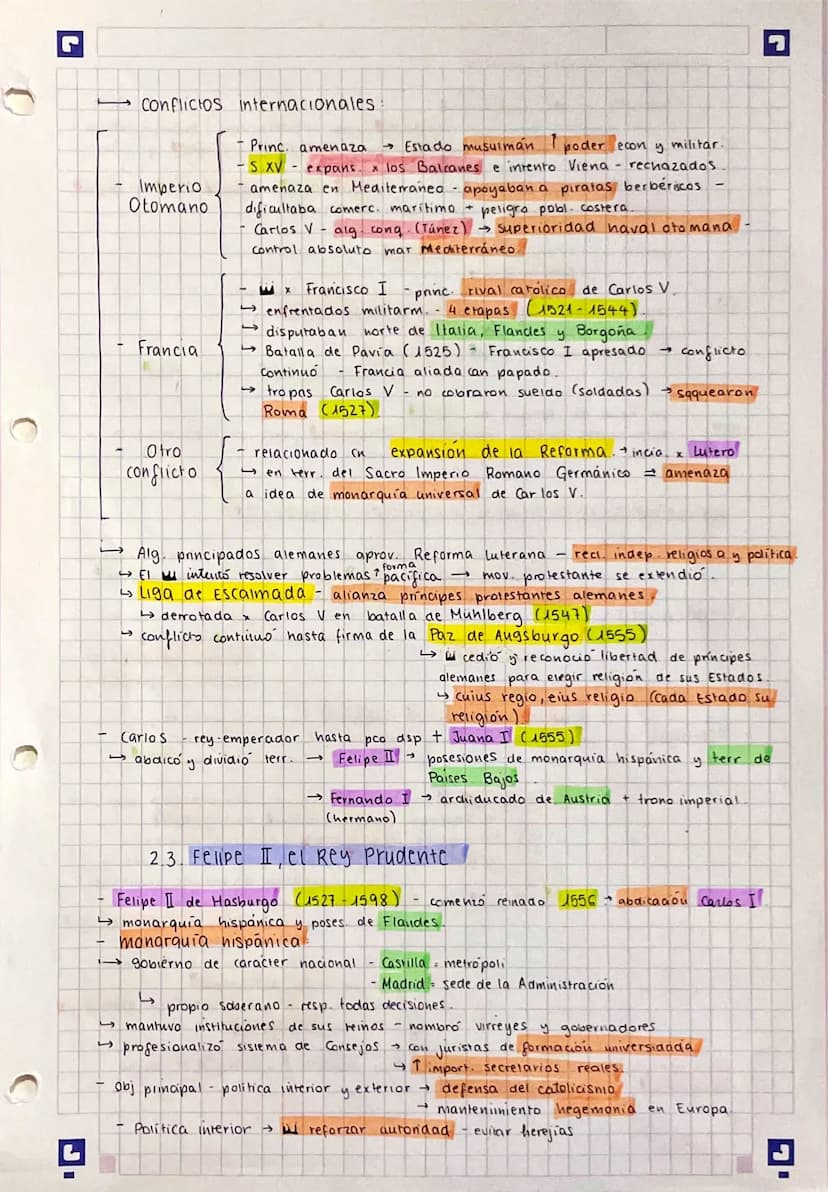 → Conflictos internacionales:
- Imperio Otomano
- Princ. amenaza → Estado musulmán ↑ poder econ y militar.
- S XV - expans. x los Balcanes e intento Viena - rechazados.
- amenaza en Mediterráneo - apoyaban a piratas berbéricos -
dificultaba comerc. marítimo + peligro pobl. costera.
- Carlos V - alg. conq. (Túnez) → superioridad naval otomana -
control absoluto mar Mediterráneo.
- Francia
- x Francisco I - princ. rival católico de Carlos V.
↳ enfrentados militarm. - 4 etapas (1521-1544).
↳ disputaban norte de Italia, Flandes y Borgoña.
↳ Batalla de Pavía (1525) - Francisco I apresado → conflicto
continuó - Francia aliada con papado.
↳ tropas Carlos V - no cobraron sueldo (soldadas) → saquearon
Roma (1527)
- Otro conflicto
- relacionado cn expansión de la Reforma. → incia. x Lutero
↳ en terr. del Sacro Imperio Romano Germánico = amenaza
a idea de monarquía universal de Carlos V.
↳ Alg. principados alemanes aprov. Reforma luterana - recl. indep. religiosa y política
↳ El intentó resolver problemas forma pacífica → mov. protestante se extendió.
↳ Liga de Escalmada - alianza príncipes protestantes alemanes.
↳ derrotada x Carlos V en batalla de Mühlberg (1547)
→ conflicto continuó hasta firma de la Paz de Augsburgo (1555)
↳ cedió y reconoció libertad de príncipes
alemanes para elegir religión de sus Estados.
↳ cuius regio, eius religio (cada Estado su
religión).
- Carlos - rey-emperador hasta pco dsp + Juana I (1555)
↳ abdicó y dividió terr. → Felipe II → posesiones de monarquía hispánica y terr de
Países Bajos.
→ Fernando I → archiducado de Austria + trono imperial.
(hermano)
2.3. Felipe II, el Rey Prudente
- Felipe II de Hasburgo (1527-1598) - comenzó reinado 1556 → abdicación Carlos I
↳ monarquía hispánica y poses. de Flandes.
- monarquía hispánica:
→ gobierno de carácter nacional - Castilla = metrópoli
- Madrid = sede de la Administración
↳ propio soberano - resp. todas decisiones.
↳ mantuvo instituciones de sus reinos - nombró virreyes y gobernadores
↳ profesionalizó sistema de Consejos → con juristas de formación universidada
↳ ↑ import. secretarios reales.
- Obj principal - política interior y exterior → defensa del catolicismo
→ mantenimiento hegemonía en Europa.
- Política interior → reforzar autoridad - evitar herejías